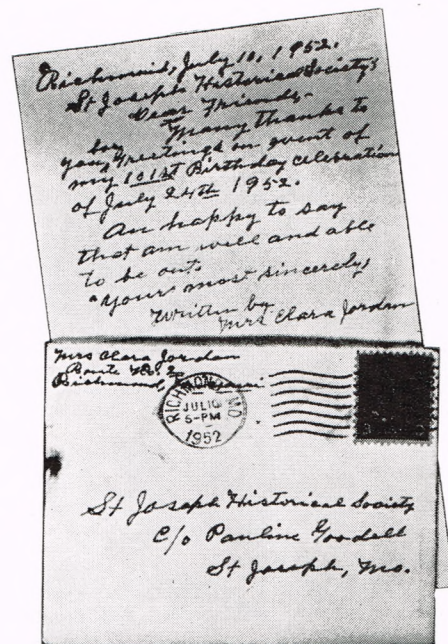 Richmond, July 10, 1952.
St Joseph Historical Society's
Dear Friends,-
Many thanks to
you, for Greetings on event of
my 101st Birthday Celebration
of July 24th 1952.
Am happy to say
that am well and able
to be out.
"Your most sincerely
Written by
Mrs Clara Jordan
Mrs Clara Jordan
Route No. 2
Richmond, Missouri
RICHMOND MO
JUL 10
5-PM
1952
St Joseph Historical Society
C/o Pauline Goodell
St Joseph, Mo.